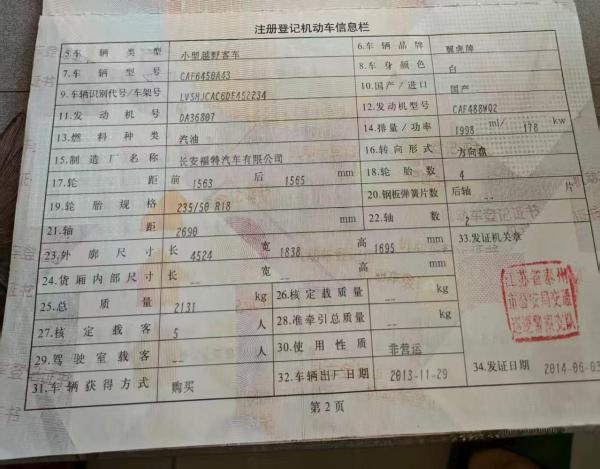 注册登记机动车信息栏
5.车辆类型 小型越野客车 6.车辆品牌 翼虎牌
7.车辆型号 CAF6450A43 8.车身颜色 白
9.车辆识别代号/车架号 LVSHJCAC6DE452234 10.国产/进口 国产
11.发动机号 DA36807 12.发动机型号 CAF488WQ2
13.燃料种类 汽油 14.排量/功率 1998 ml/ 178 kw
15.制造厂名称 长安福特汽车有限公司 16.转向形式 方向盘
17.轮距 前 1563 后 1565 mm 18.轮胎数 4
19.轮胎规格 235/50 R18 20.钢板弹簧片数 后轴 片
21.轴距 2690 mm 22.轴数 2
23.外廓尺寸 长 4524 宽 1838 高 1695 mm 33.发证机关章
24.货厢内部尺寸 长 -- 宽 -- 高 -- mm
江苏省泰州
市公安局交通
巡逻警察支队
25.总质量 2131 kg 26.核定载质量 -- kg
27.核定载客 5 人 28.准牵引总质量 -- kg
29.驾驶室载客 -- 人 30.使用性质 非营运
31.车辆获得方式 购买 32.车辆出厂日期 2013-11-29 34.发证日期 2014-06-03
第2页